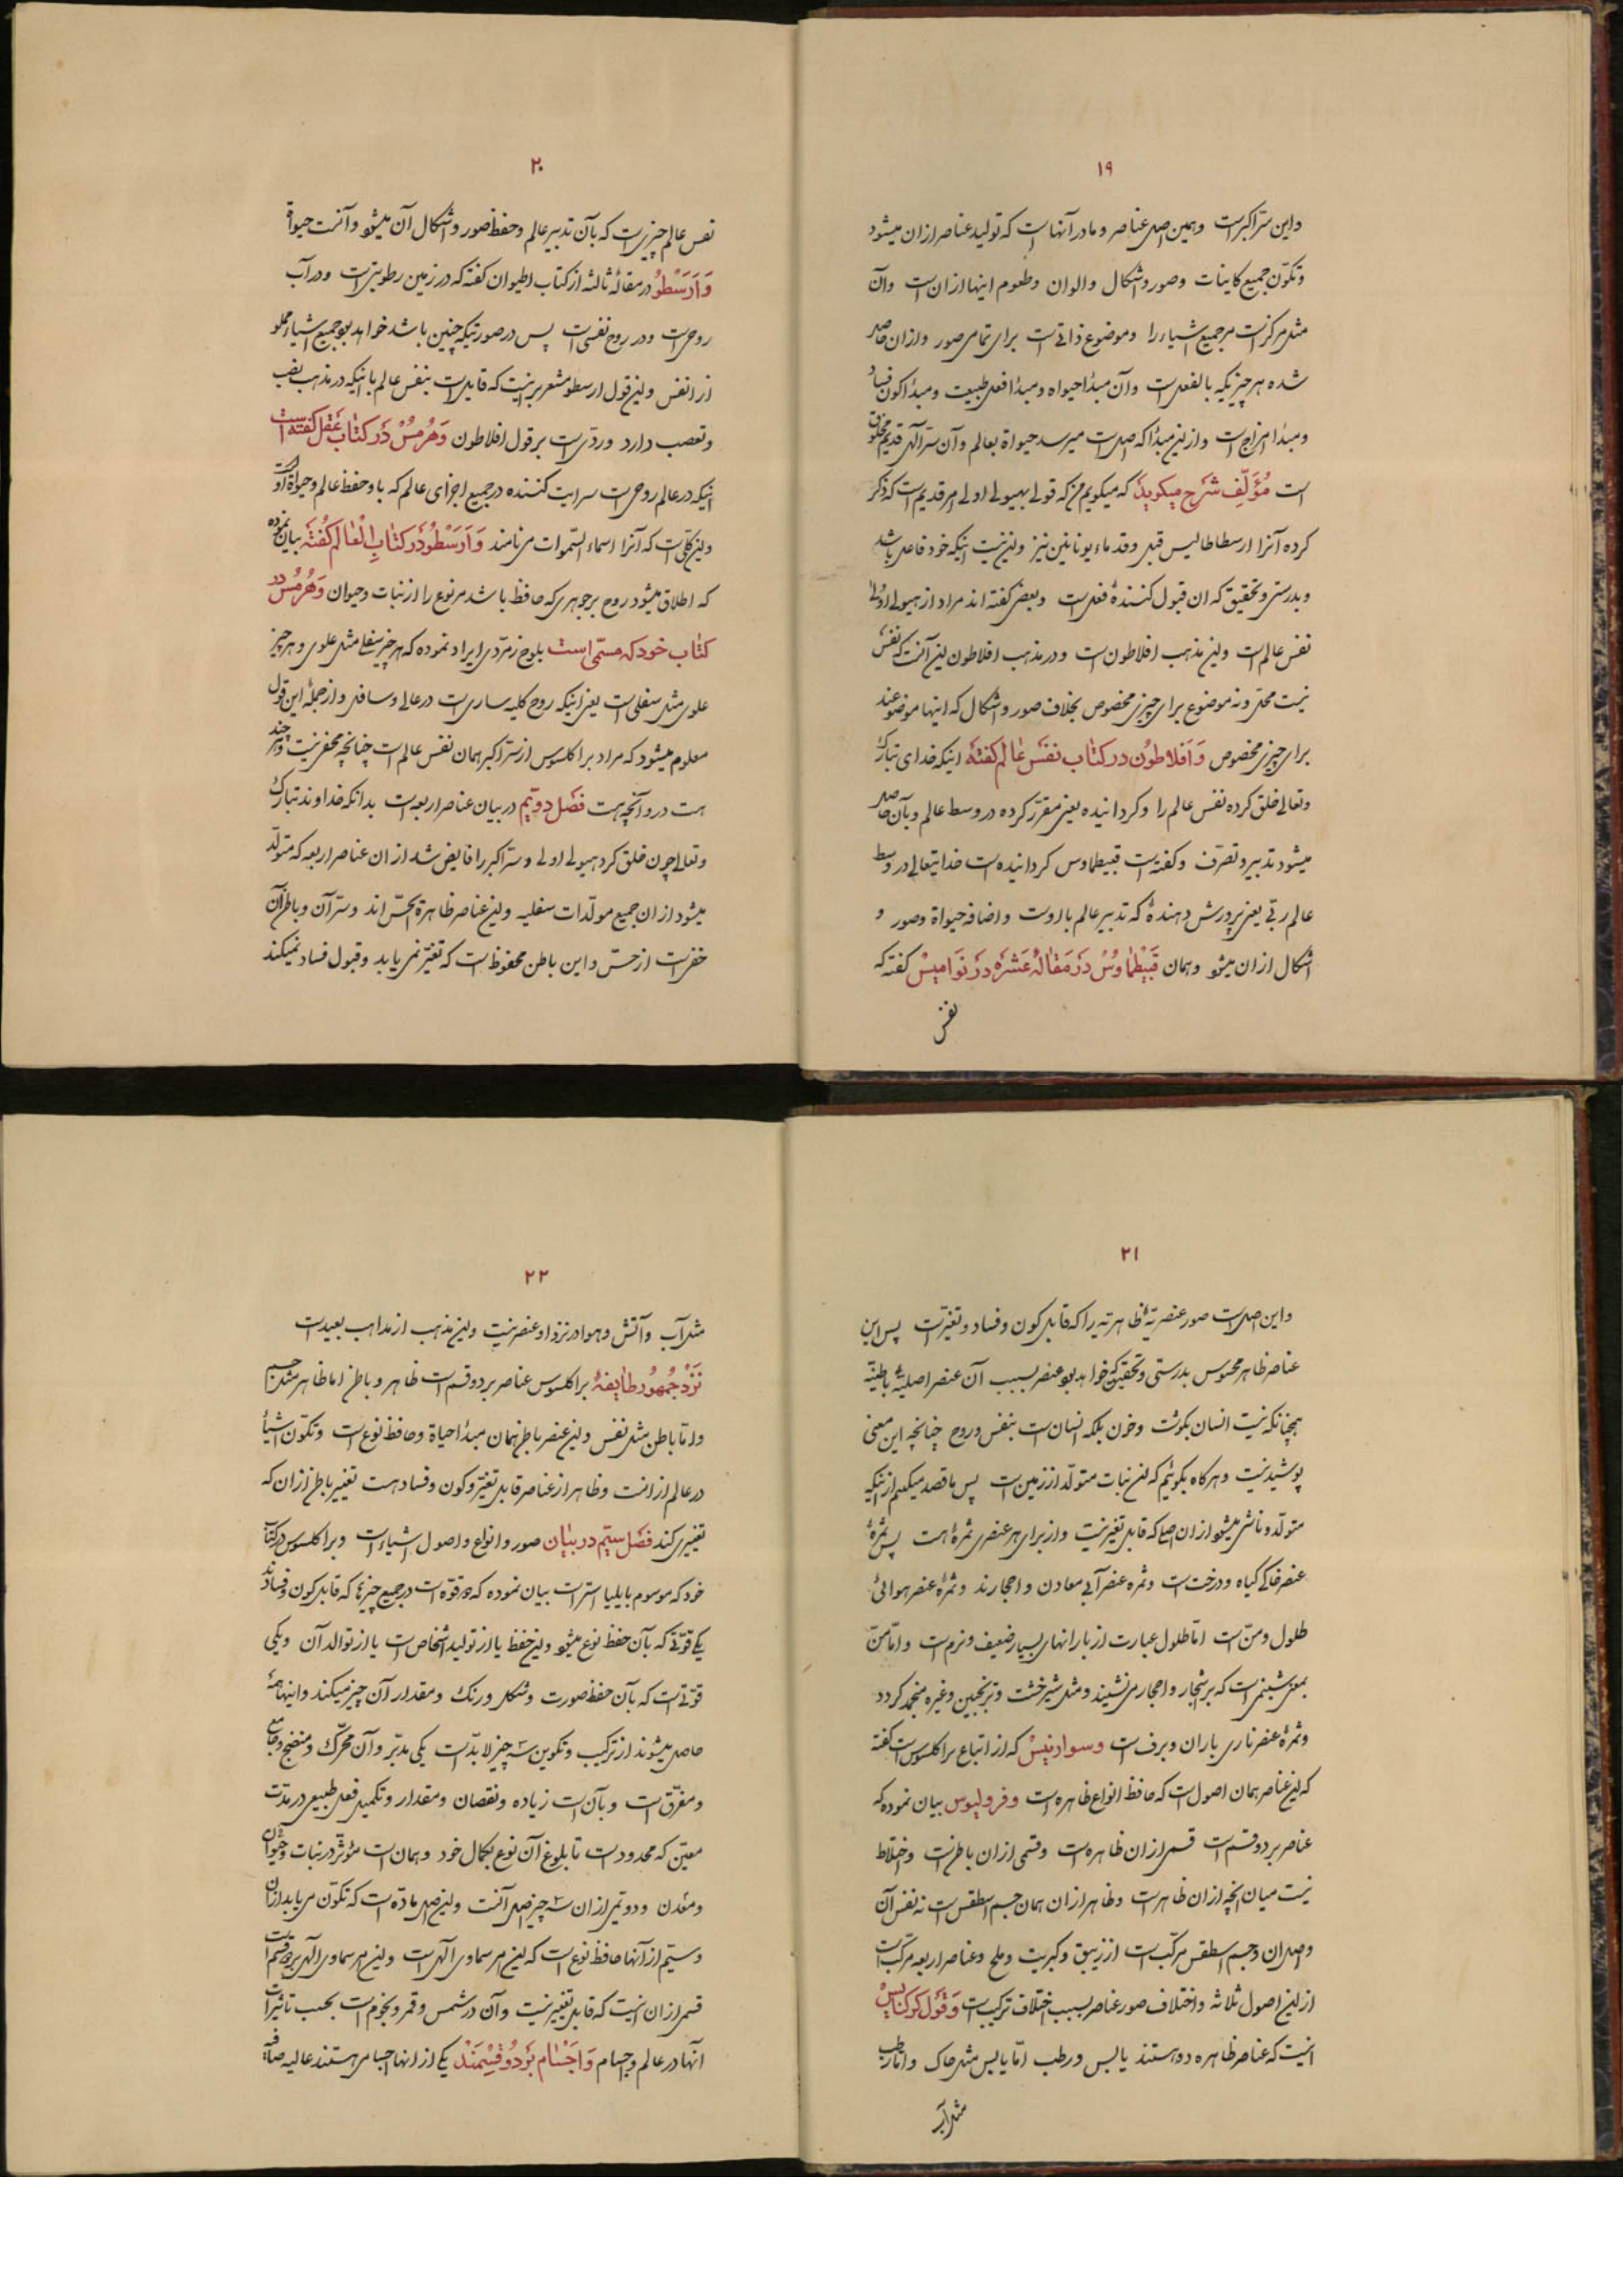 ۱۹
واین سرّ اکبر است وهمین اصل عناصر ومادر آنها است که تولید عناصر ازان میشود
وتکوّن جمیع کاینات وصور واشکال والوان وطعوم اینها ازان است وآن
مثل مرکز است مر جمیع اشیاء را وموضوع ذاتی است برای تمامی صور وازان حاصل
شده هر چیزیکه بالفعل است وآن مبدأ حیواة ومبدأ فعل طبیعت ومبدأ کون وفساد
ومبدأ امزاج است وازین مبدأ که اصل است میرسد حیواة بعالم وآن سرّ الهی قدیم مخلوق
است مُؤَلِّفِ شَرْح میکوید که میکویم من که قول بهیولی اولی امر قدیم است که ذکر
کرده آنرا ارسطاطالیس قبل وقدماء یونانیین نیز واین نیست اینکه خود فاعل باشد
وبدرستی وتحقیق که ان قبول کنندهٔ فعل است وبعضی کفته اند مراد از هیولی اولی
نفس عالم است واین مذهب افلاطون است ودر مذهب افلاطون این آنست که نفس
نیست محلّ ونه موضوع برای چیزی مخصوص بخلاف صور واشکال که اینها موضوعند
برای چیزی مخصوص وَاَفلاطوُن در کتاب نفسَ عالم کفته اینکه خدای تبارک
وتعالی خلق کرده نفس عالم را وکردانیده یعنی مقرّر کرده در وسط عالم وبآن حاصل
میشود تدبیر وتصرّف وکفته است قبیطماوس کردانیده است خدایتعالی در وسط
عالم ربّی یعنی پرورش دهندهٔ که تدبیر عالم با اوست واضافه حیواة وصور و
اشکال ازان میشو وهمان قَبیْطماوُسْ دَرْ مَقالۀ عَشَرَه دَرْ نَوامیسْ کفته که
نفس
۲۰
نفس عالم چیزیست که بآن تدبیر عالم وحفظ صور واشکال آن میشو وآنست حیواة
وَاَرَسْطُو در مقالهٔ ثالثه از کتاب اطیوان کفته که در زمین رطوبتی است ودر آب
روحی است ودر روح نفسی است پس درصورتیکه چنین باشد خواهد بو جمیع اشیاء مملو
از انفس واین قول ارسطو مشعر بر اینست که قایل است بنفس عالم با اینکه در مذهب
وتعصب دارد وردّی است بر قول افلاطون وَهُرمُسْ دَرکتابِ عَقل کفته است
اینکه در عالم روحی است سرایت کننده در جمیع اجزای عالم که باو حفظ عالم وحیواة اوست
واین کلّی است که آنرا اسماء السّموات می نامند وَاَرَسْطُو دَرکتابِ اِلْعالَم کُفتَه بیان نموده
که اطلاق میشود روح بر جوهری که حافظ باشد مر نوع را از نبات وحیوان وَهُرمُسْ در
کتاب خود که مسمّی است بلوح زمرّدی ایراد نموده که هر چیز سفلی مثل علوی وهر چیز
علوی مثل سفلی است یعنی اینکه روح کلیه ساری است در عالی وسافل وازجملهٔ این قول
معلوم میشود که مراد براکلسوس از سرّ اکبر همان نفس عالم است چنانچه مخفی نیست وهر چند
هست درو آنچه هست فَصَل دویّم در بیان عناصر اربعه است بدانکه خداوند تبارک
وتعالی چون خلق کرد هیولی اولی وسرّ اکبر را فایض شد ازان عناصر اربعه که متولّد
میشود ازان جمیع مولّدات سفلیه واین عناصر ظاهرة الحسّ اند وسرّ آن وباطن آن
خفی است از حسّ واین باطن محفوظ است که تغیّر نمی یابد وقبول فساد نمیکند
۲۱
واین اصل است صور عنصریّهٔ ظاهریّه را که قابل کون وفساد وتغیّر است پس این
عناصر ظاهر محسوس بدرستی وتحقیق که خواهد بو عنصر بسبب آن عنصر اصلیّهٔ باطنیّه
همچنانکه نیست انسان بکوشت وخون بلکه انسان است بنفس وروح چنانچه این معنی
پوشیده نیست وهرکاه بکوئیم که این نبات متولّد از زمین است پس ما قصد میکنیم از اینکه
متولّد وناشی میشو ازان اصل که قابل تغیّر نیست واز برای هر عنصری ثمرهٔ است پس ثمرهٔ
عنصر خاکی کیاه ودرخت است وثمره عنصر آبی معادن واحجارند وثمرهٔ عنصر هوائی
طلول ومنّ است امّا طلول عبارت از بارانهای بسیار ضعیف ونرم است وامّا منّ
بمعنی شبنمی است که بر اشجار واحجار می نشیند ومثل شیرخشت وترنجبین وغیره منجمد کردد
وثمرهٔ عنصر ناری باران وبرف است وسوارنیسْ که از اتباع براکلسوس است کفته
که این عناصر همان اصول است که حافظ انواع ظاهره است وفرولیوس بیان نموده که
عناصر بر دو قسم است قسمی ازان ظاهره است وقسمی ازان باطن است واختلاط
نیست میان انچه ازان ظاهر است وظاهر ازان همان جسم اسطقس است نه نفس آن
واصل ان وجسم اسطقس مرکّب است از زیبق وکبریت وملح وعناصر اربعه مرکّب است
ازین اصول ثلاثه واختلاف صور عناصر بسبب اختلاف ترکیب است وَقَول
اینست که عناصر ظاهره دو هستند یابس ورطب امّا یابس مثل خاک وامّا رطب
مثل آب
۲۲
مثل آب وآتش وهوا در نزد او عنصر نیست واین مذهب از مذاهب بعید است
نَزْد جُمهُور طایفۀ براکلسوس عناصر بر دو قسم است ظاهر وباطن اما ظاهر مثل جسم
وامّا باطن مثل نفس واین عنصر باطن همان مبدأ احیاة وحافظ نوع است وتکوّن اشیأ
در عالم از انست وظاهر از عناصر قابل تغیّر وکون وفساد هست تغییر باطن ازان که
تغییر کند فَصَل سیّم در بیٰان صور وانواع واصول اشیاء است وبراکلسوس در کتاب
خود که موسوم بایلیا است بیان نموده که دو قوّه است در جمیع چیزها که قابل کون وفسادند
یکی قوّتی که بآن حفظ نوع میشو واین حفظ یا از تولید اشخاص است یا از توالد آن ویکی
قوّتی است که بآن حفظ صورت وشکل ورنک ومقدار آن چیز میکند واینها همهٔ
حاصل میشوند از ترکیب وتکوین سه چیز لابدّ است یکی مدبّر وآن محرّک ومنضج وجامع
ومفرّق است وبآن است زیاده ونقصان ومقدار وتکمیل فعل طبیعی در مدّت
معیّن که محدود است تا بلوغ آن نوع بکمال خود وهمان است مؤثّر در نبات وحیوان
ومعدن ودویمی ازان سه چیز اصل آنست واین اصل مادّه است که تکوّن می یابد ازان
وسیّم از آنها حافظ نوع است که این امر سماوی الهی است واین امر سماوی الهی بر دو قسم است
قسمی ازان اینست که قابل تغییر نیست وآن در شمس وقمر ونجوم است بحسب تاثیرات
آنها در عالم واجسام وَاَجْسٰام بَرْدُو قِسْمَنْد یکی از انها اجسامی هستند عالیه صافیه